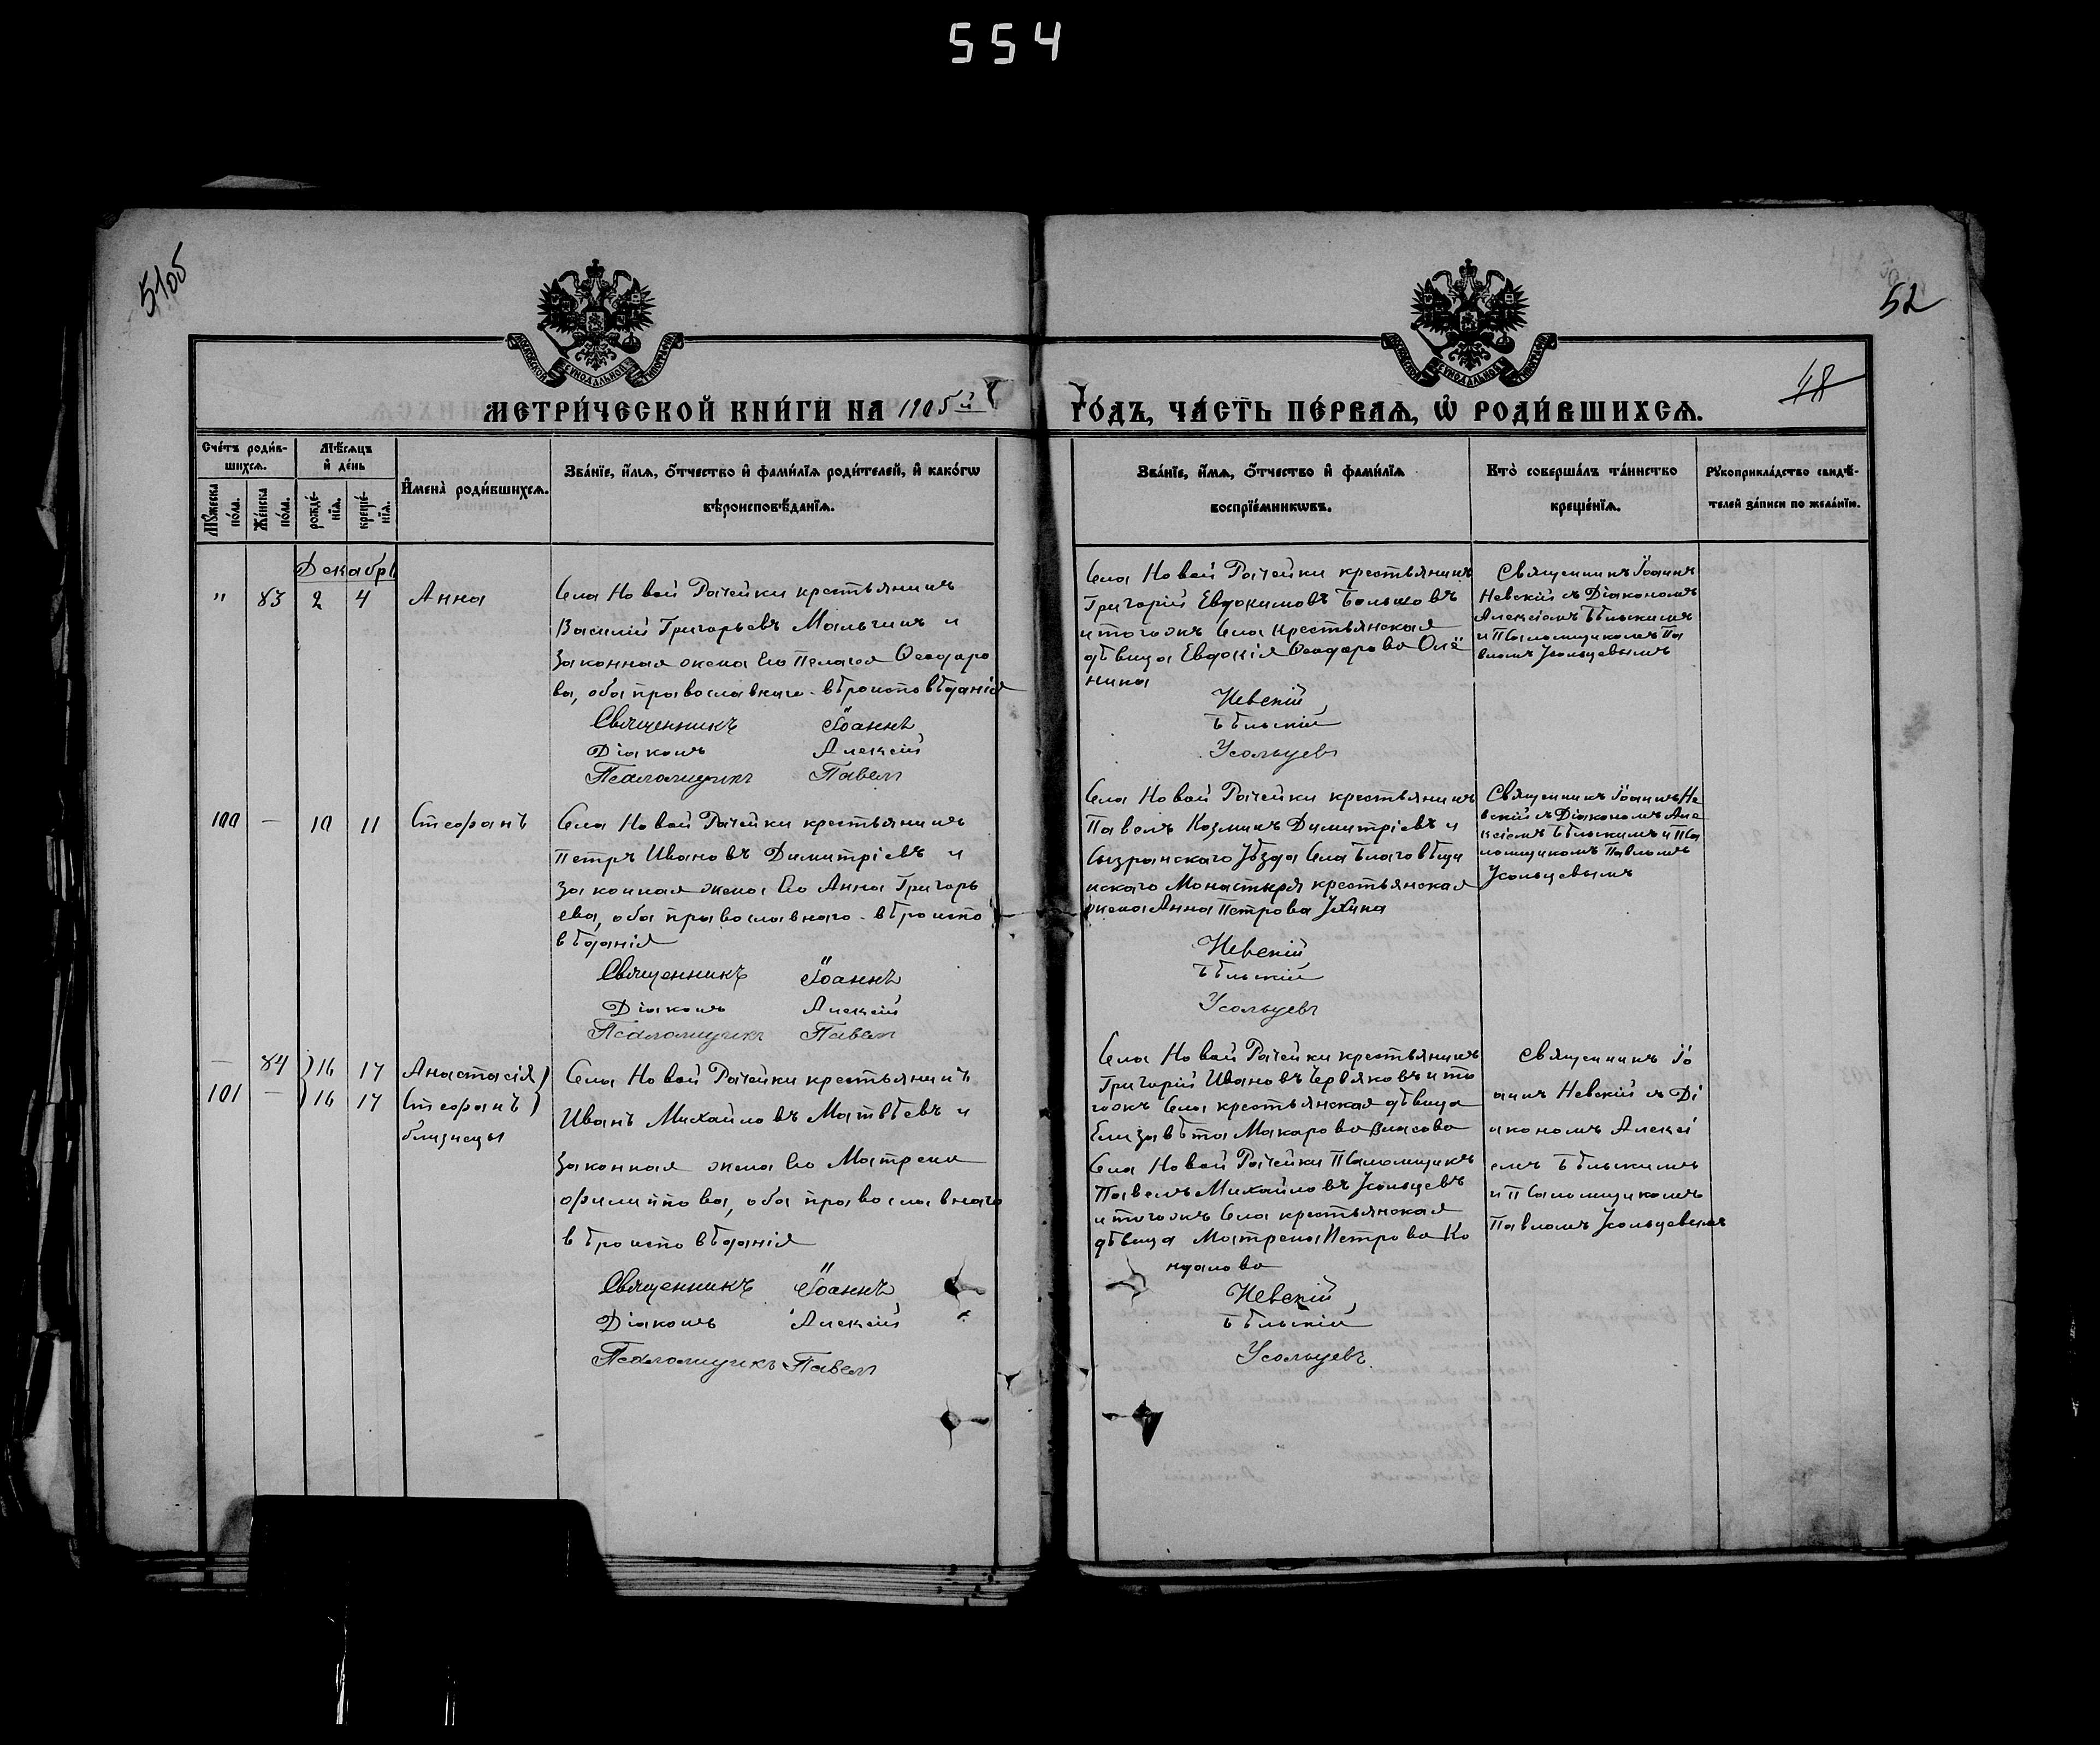 554
5105
52
48
МЕТРИ́ЧЕСКОЙ КНИ́ГИ НА 1905й
ГО́ДЪ, ЧА́СТЬ ПЕ́РВАѦ, Ѽ РОДИ́ВШИХСѦ.
Сче́тъ роди́в-
шихсѧ.
Мѣ́сѧцъ
и҆ де́нь
И҆мена̀ роди́вшихсѧ.
Зва́нїе, и҆́мѧ, ѻ҆́тчество и҆ фами́лїѧ роди́телей, и҆ како́гѡ
вѣроисповѣ́данїѧ.
Мꙋ́жеска
по́ла.
Же́нска
по́ла.
рожде́-
нїѧ.
креще́-
нїѧ.
Зва́нїе, и҆́мѧ, ѻ҆́тчество и҆ фами́лїѧ
воспрїе́мникѡвъ.
Кто̀ соверша́лъ та́инство
креще́нїѧ.
Рꙋкоприкла́дство свидѣ́-
телей за́писи по жела́нїю.
Декабрь
" 83 2 4 Анна
Села Новой Рачейки крестьянинъ
Василій Григорьевъ Мальгинъ и
законная жена его Пелагея Ѳеодоро
ва, оба православнаго вѣроисповѣданія
Священникъ Іоаннъ
Діаконъ Алексій
Псаломщикъ Павелъ
Села Новой Рачейки крестьянинъ
Григорій Евдокимовъ Большовъ
и тогожъ села крестьянская
дѣвица Евдокія Ѳеодорова Олё
нина
Невскій
Бѣльскій
Усольцевъ
Священникъ Іоаннъ
Невскій съ Діакономъ
Алексіемъ Бѣльскимъ
и Псаломщикомъ Па
вломъ Усольцевымъ
100 — 10 11 Стефанъ
Села Новой Рачейки крестьянинъ
Петръ Ивановъ Димитріевъ и
законная жена его Анна Григорь
ева, оба православнаго вѣроиспо
вѣданія
Священникъ Іоаннъ
Діаконъ Алексій
Псаломщикъ Павелъ
Села Новой Рачейки крестьянинъ
Павелъ Козминъ Димитріевъ и
Сызранскаго Уѣзда Села Благовѣщи
нскаго Монастыря крестьянская
жена Анна Петрова Ухина
Невскій
Бѣльскій
Усольцевъ
Священникъ Іоаннъ Не
вскій съ Діакономъ Але
ксіемъ Бѣльскимъ и Пса
ломщикомъ Павломъ
Усольцевымъ
— 84 16 17 Анастасія
101 — 16 17 Стефанъ
близнецы
Села Новой Рачейки крестьянинъ
Иванъ Михайловъ Матвѣевъ и
законная жена его Матрена
Филиппова, оба православнаго
вѣроисповѣданія
Священникъ Іоаннъ
Діаконъ Алексій
Псаломщикъ Павелъ
Села Новой Рачейки крестьянинъ
Григорій Ивановъ Червяковъ и то
гожъ села крестьянская дѣвица
Елизавѣта Макарова Власова
Села Новой Рачейки Псаломщикъ
Павелъ Михайловъ Усольцевъ
и тогожъ села крестьянская
дѣвица Матрена Петрова Ко
ндалова
Невскій
Бѣльскій
Усольцевъ
Священникъ Іо
аннъ Невскій съ Ді
акономъ Алексі
емъ Бѣльскимъ
и Псаломщикомъ
Павломъ Усольцевымъ